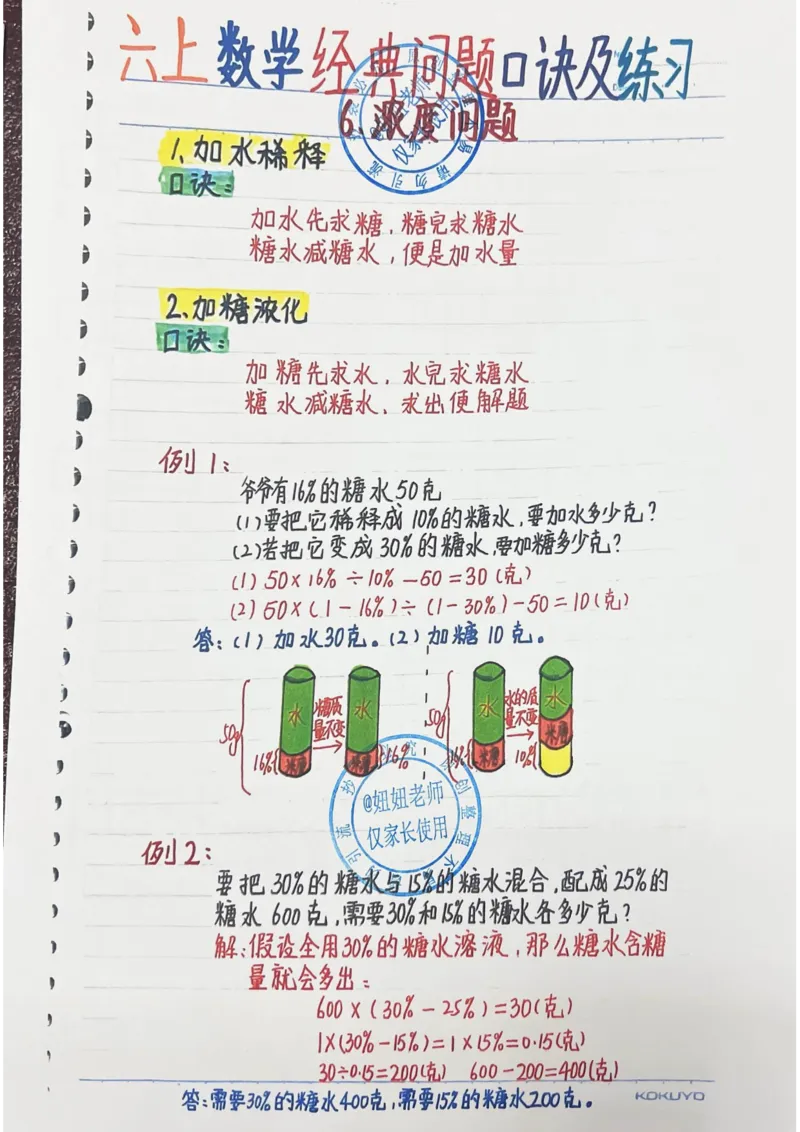 六上数学经典问题口诀及练习
6.浓度问题
1、加水稀释
口诀：
加水先求糖，糖完求糖水
糖水减糖水，便是加水量
2、加糖浓化
口诀：
加糖先求水，水完求糖水
糖水减糖水、求出便解题
例1：
爷爷有16%的糖水50克
(1)要把它稀释成10%的糖水，要加水多少克？
(2)若把它变成30%的糖水，要加糖多少克？
(1) 50×16%÷10%-50=30(克)
(2) 50×(1-16%)÷(1-30%)-50=10(克)
答：(1)加水30克。(2)加糖10克。
50g
水
糖质
量不变
水
16%
16%
50g
水
水的质
量不变
水
10%
@妞妞老师
仅家长使用
例2：
要把30%的糖水与15%的糖水混合，配成25%的
糖水600克，需要30%和15%的糖水各多少克？
解：假设全用30%的糖水溶液，那么糖水含糖
量就会多出：
600×(30%-25%)=30(克)
1×(30%-15%)=1×15%=0.15(克)
30÷0.15=200(克) 600-200=400(克)
答：需要30%的糖水400克，需要15%的糖水200克。
KOKUYO